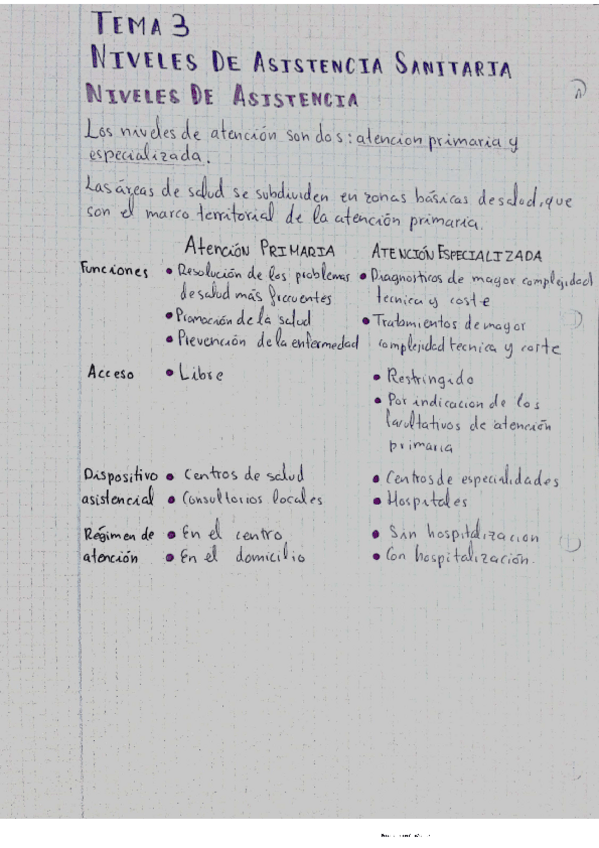 TEMA 3
NIVELES DE ASISTENCIA SANITARIA
NIVELES DE ASISTENCIA
Los niveles de atención son dos: atencion primaria y
especializada.
Las áreas de salud se subdividen en zonas básicas de salud, que
son el marco territorial de la atención primaria.
Atención PRIMARIA ATENCIÓN ESPECIALIZADA
Funciones • Resolución de los problemas • Diagnosticos de mayor complejidad
de salud más frecuentes tecnica y coste
• Promoción de la salud • Tratamientos de mayor
• Prevención de la enfermedad complejidad tecnica y corte
Acceso • Libre • Restringido
• Por indicacion de los
facultativos de atención
primaria
Dispositivo • Centros de salud • Centros de especialidades
asistencial • Consultorios locales • Hospitales
Régimen de • En el centro • Sin hospitalizacion
atención • En el domicilio • Con hospitalización.